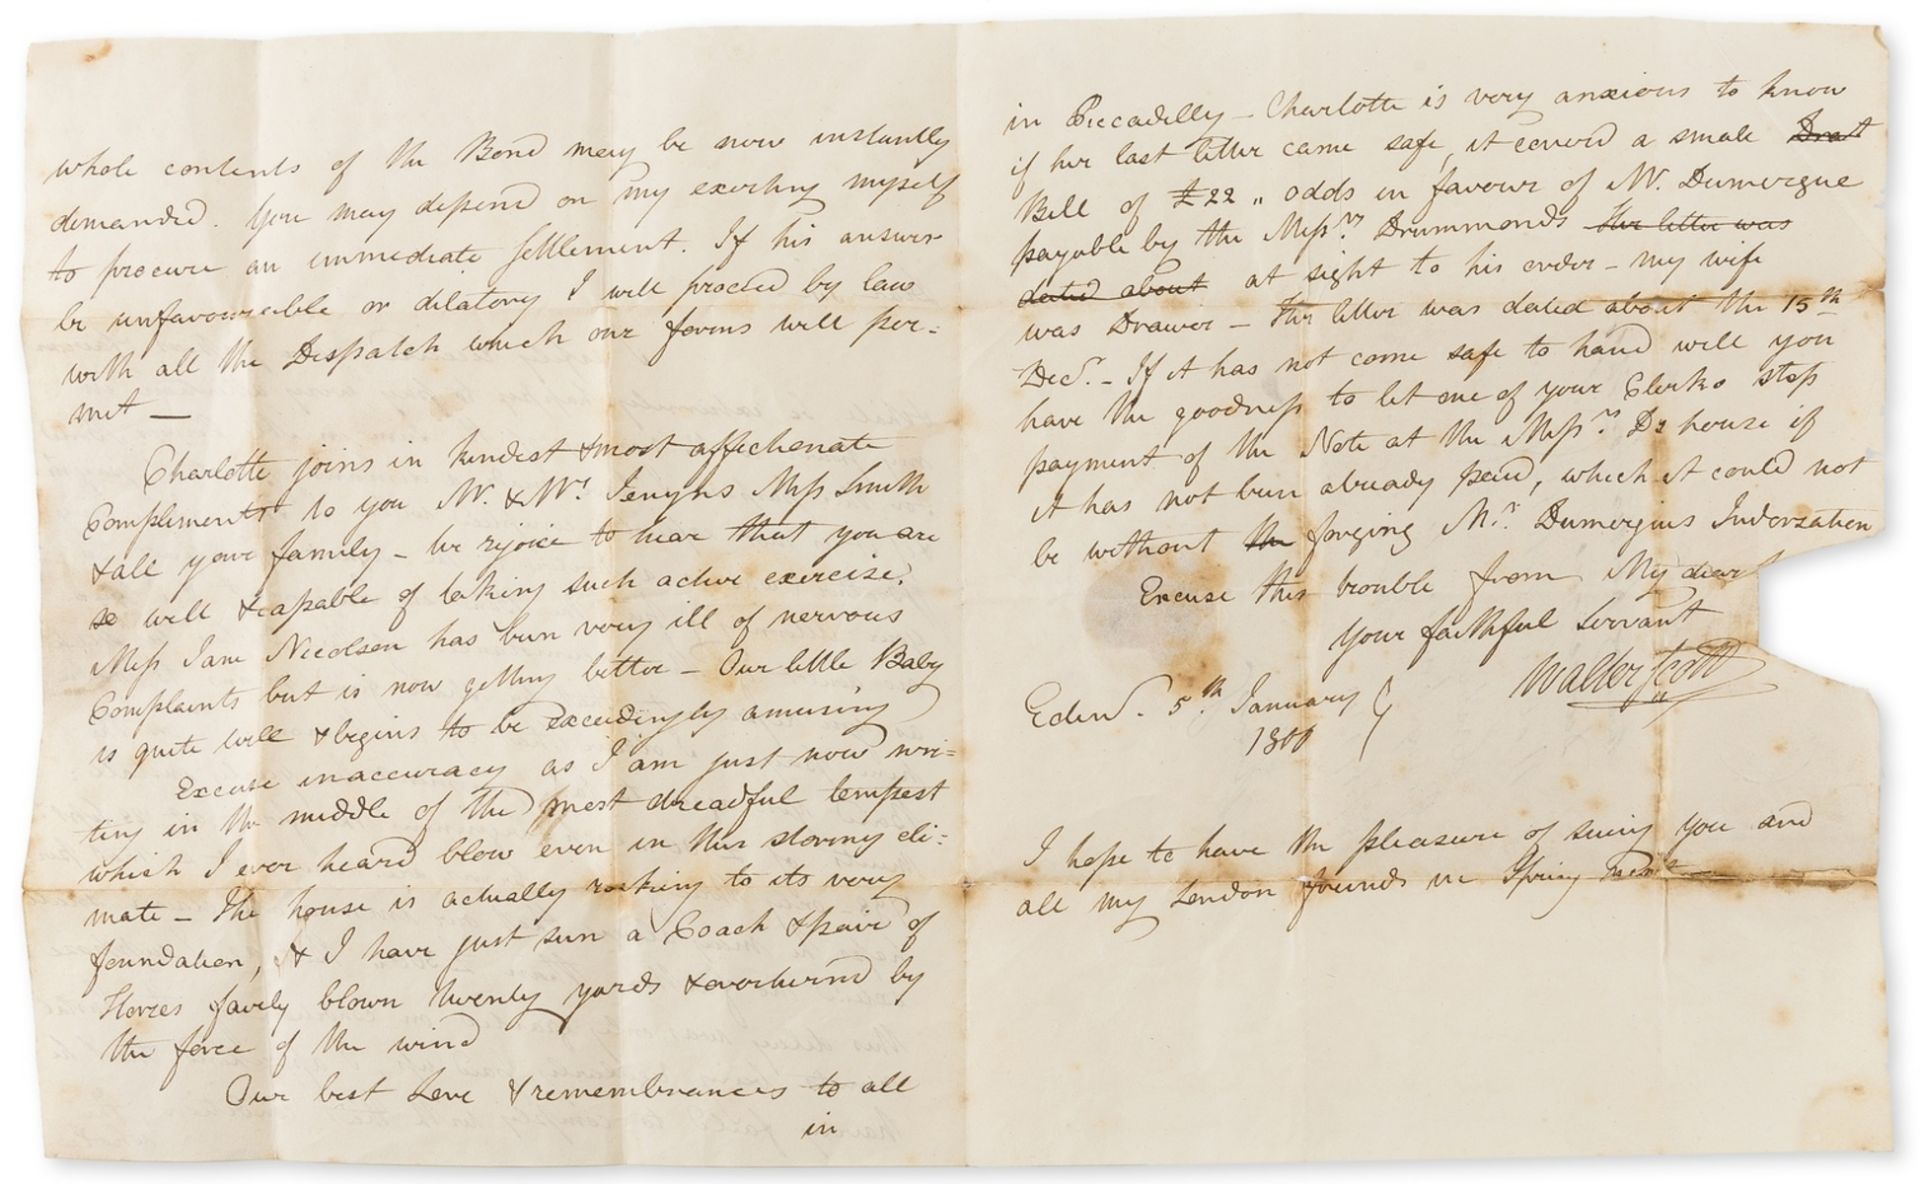 whole contents of the Bond may be now instantly
demanded. You may depend on my exerting myself
to procure an immediate settlement. If his answer
be unfavourable or dilatory I will proceed by law
with all the Dispatch which our forms will per=
mit —
Charlotte joins in kindest & most affectionate
Compliments to you Mr. & Mrs. Jenyns Miss Smith
& all your family – we rejoice to hear that you are
so well & capable of taking such active exercise.
Miss Jane Nicolson has been very ill of nervous
Complaints but is now getting better – Our little Baby
is quite well & begins to be exceedingly amusing
Excuse inaccuracy as I am just now wri=
ting in the middle of the most dreadful tempest
which I ever heard blow even in this stormy cli=
mate – The house is actually rocking to its very
foundation, & I have just seen a Coach & pair of
Horses fairly blown twenty yards & overturnd by
the force of the wind
Our best Love & remembrances to all
in
in Piccadilly – Charlotte is very anxious to know
if her last letter came safe, it coverd a small Draft
Bill of £22 „ odds in favour of Mr. Dumergue
payable by the Messrs. Drummonds Her letter was
dated about at sight to his order – my wife
was Drawer – Her letter was dated about the 15th
Decr. – If it has not come safe to hand will you
have the goodness to let one of your Clerks stop
payment of the Note at the Messrs. Ds house if
it has not been already paid, which it could not
be without the forging Mr. Dumergues Indorzation
Excuse this trouble from My dear
Your faithful Servant
Walter Scott
Edinr. 5th. January
1800
I hope to have the pleasure of seeing you and
all my London friends in Spring next —